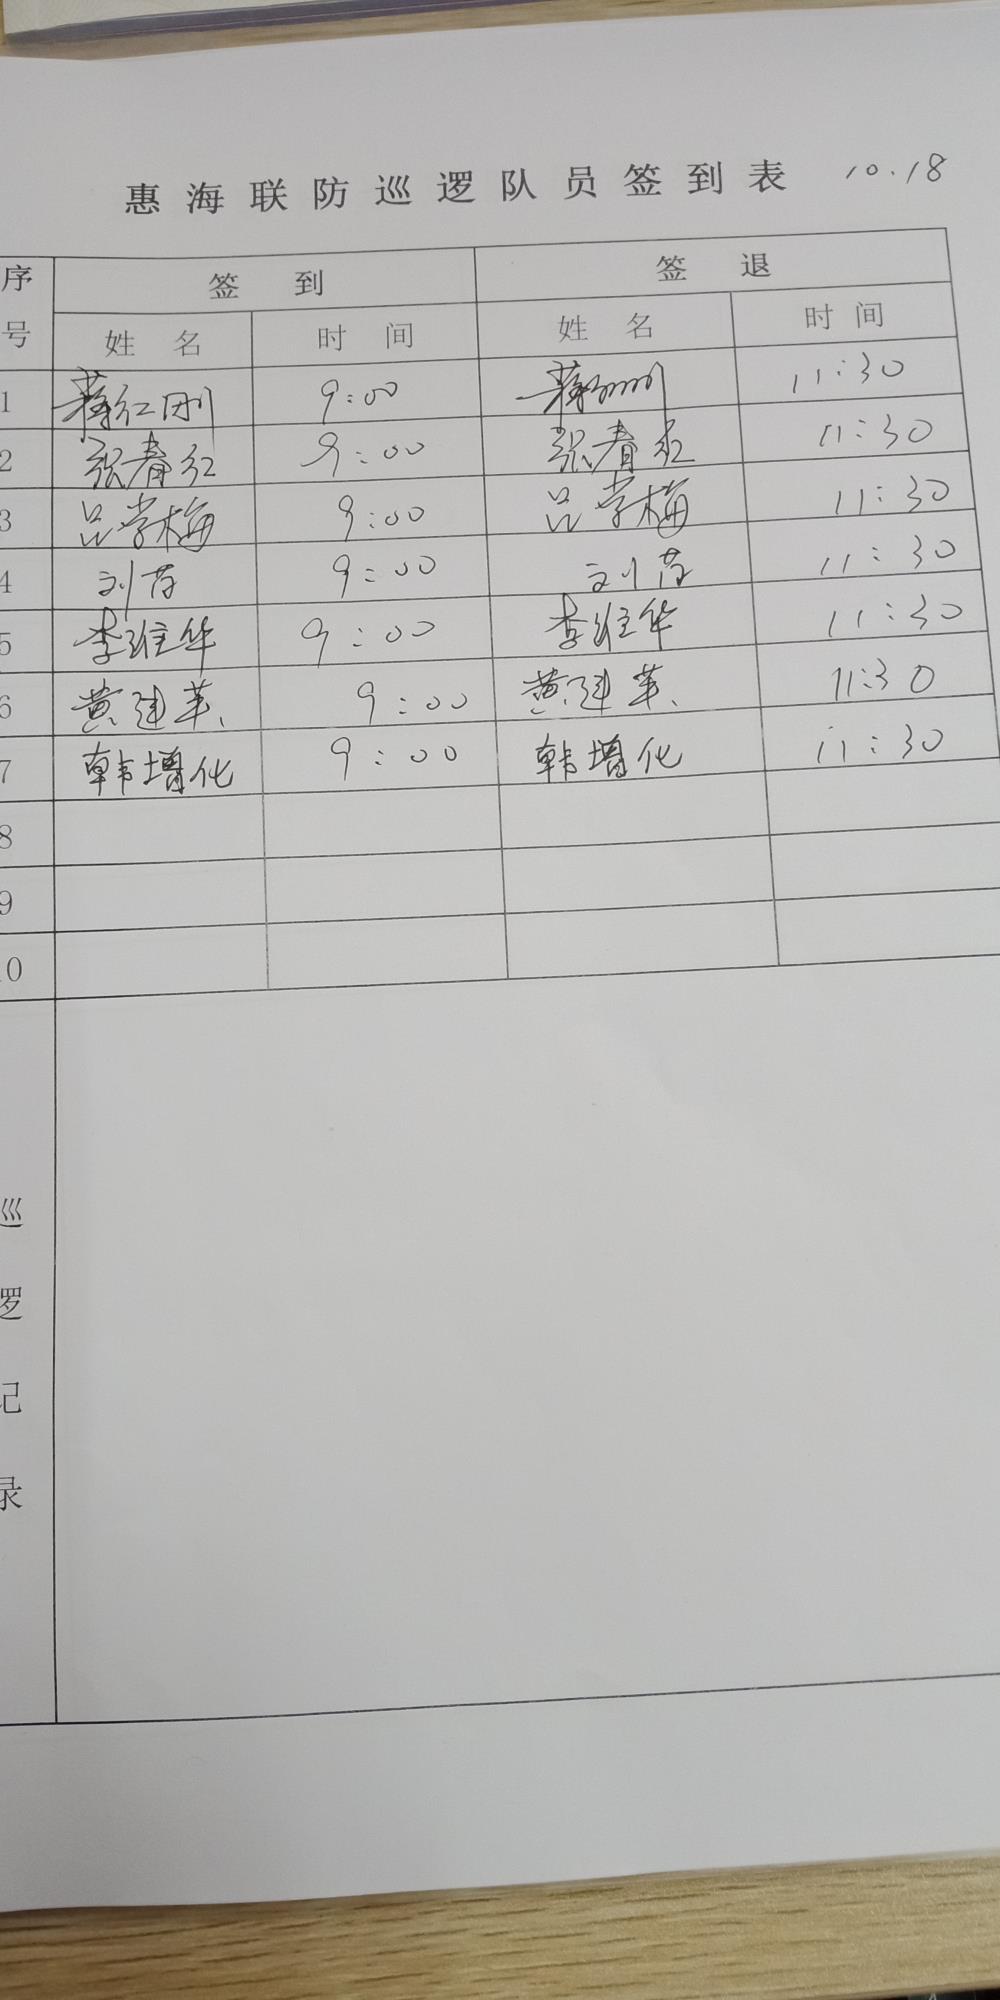 惠海联防巡逻队员签到表 10.18
序号 签到 签退
姓名 时间 姓名 时间
1 蒋红刚 9:00 11:30
2 张春红 9:00 张春红 11:30
3 吕学梅 9:00 吕学梅 11:30
4 刘 9:00 刘 11:30
5 李维华 9:00 李维华 11:30
6 黄建苹 9:00 黄建苹 11:30
7 韩增化 9:00 韩增化 11:30
8
9
10
巡逻记录